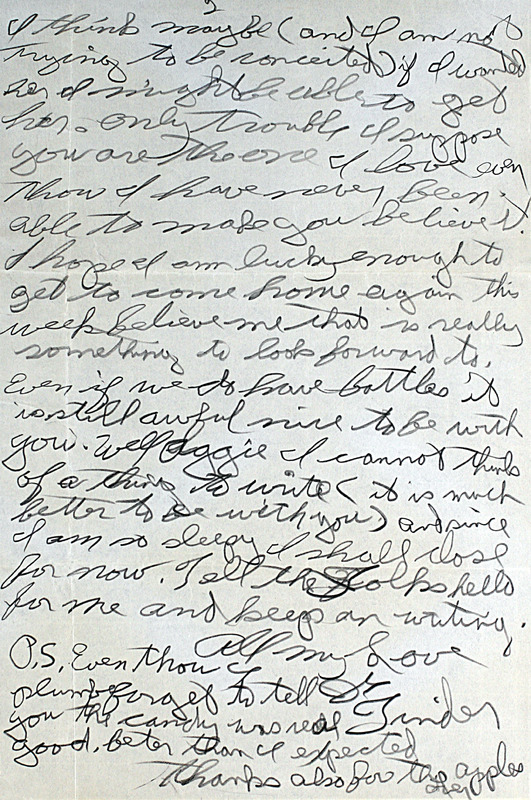 2
I think maybe (and I am not
trying to be conceited) if I wanted
her I might be able to get
her. Only trouble I suppose
you are the one I love even
thou I have never been
able to make you believe it.
I hope I am lucky enough to
get to come home again this
week believe me that is really
something to look forward to.
Even if we do have battles it
is still awful nice to be with
you. Well Aggie I cannot think
of a thing to write (it is much
better to be with you) and since
I am so sleepy I shall close
for now. Tell the folks hello
for me and keep on writing.
All my Love
P.S. Even thou I
plumb forget to tell
you the candy was real
good, better than I expected
Thanks also for the apples